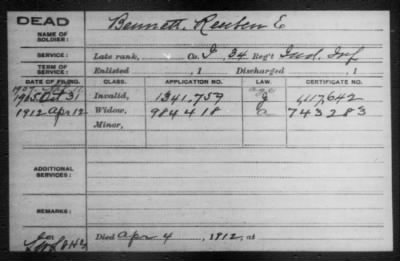 DEAD
NAME OF SOLDIER: Bennett, Reuben E
SERVICE: Late rank, Co. I, 34 Reg't Ind. Inf
TERM OF SERVICE: Enlisted , 1 Discharged , 1
DATE OF FILING. CLASS. APPLICATION NO. LAW. CERTIFICATE NO.
Oct 31 Invalid, 1341,759 g 417,642
1912 Apr 12 Widow, 984418 a 743283
Minor,
ADDITIONAL SERVICES:
REMARKS:
Died Apr 4 , 1912, at